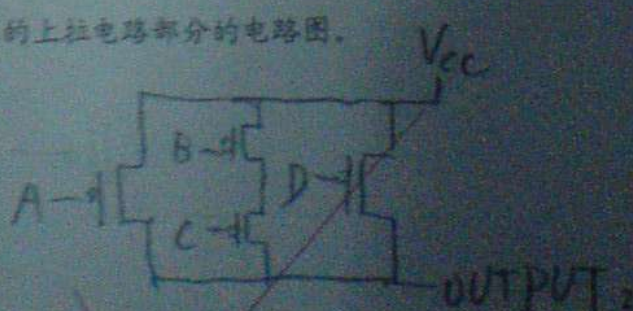 的上拉电路部分的电路图。
Vcc
B
D
A
C
OUTPUT